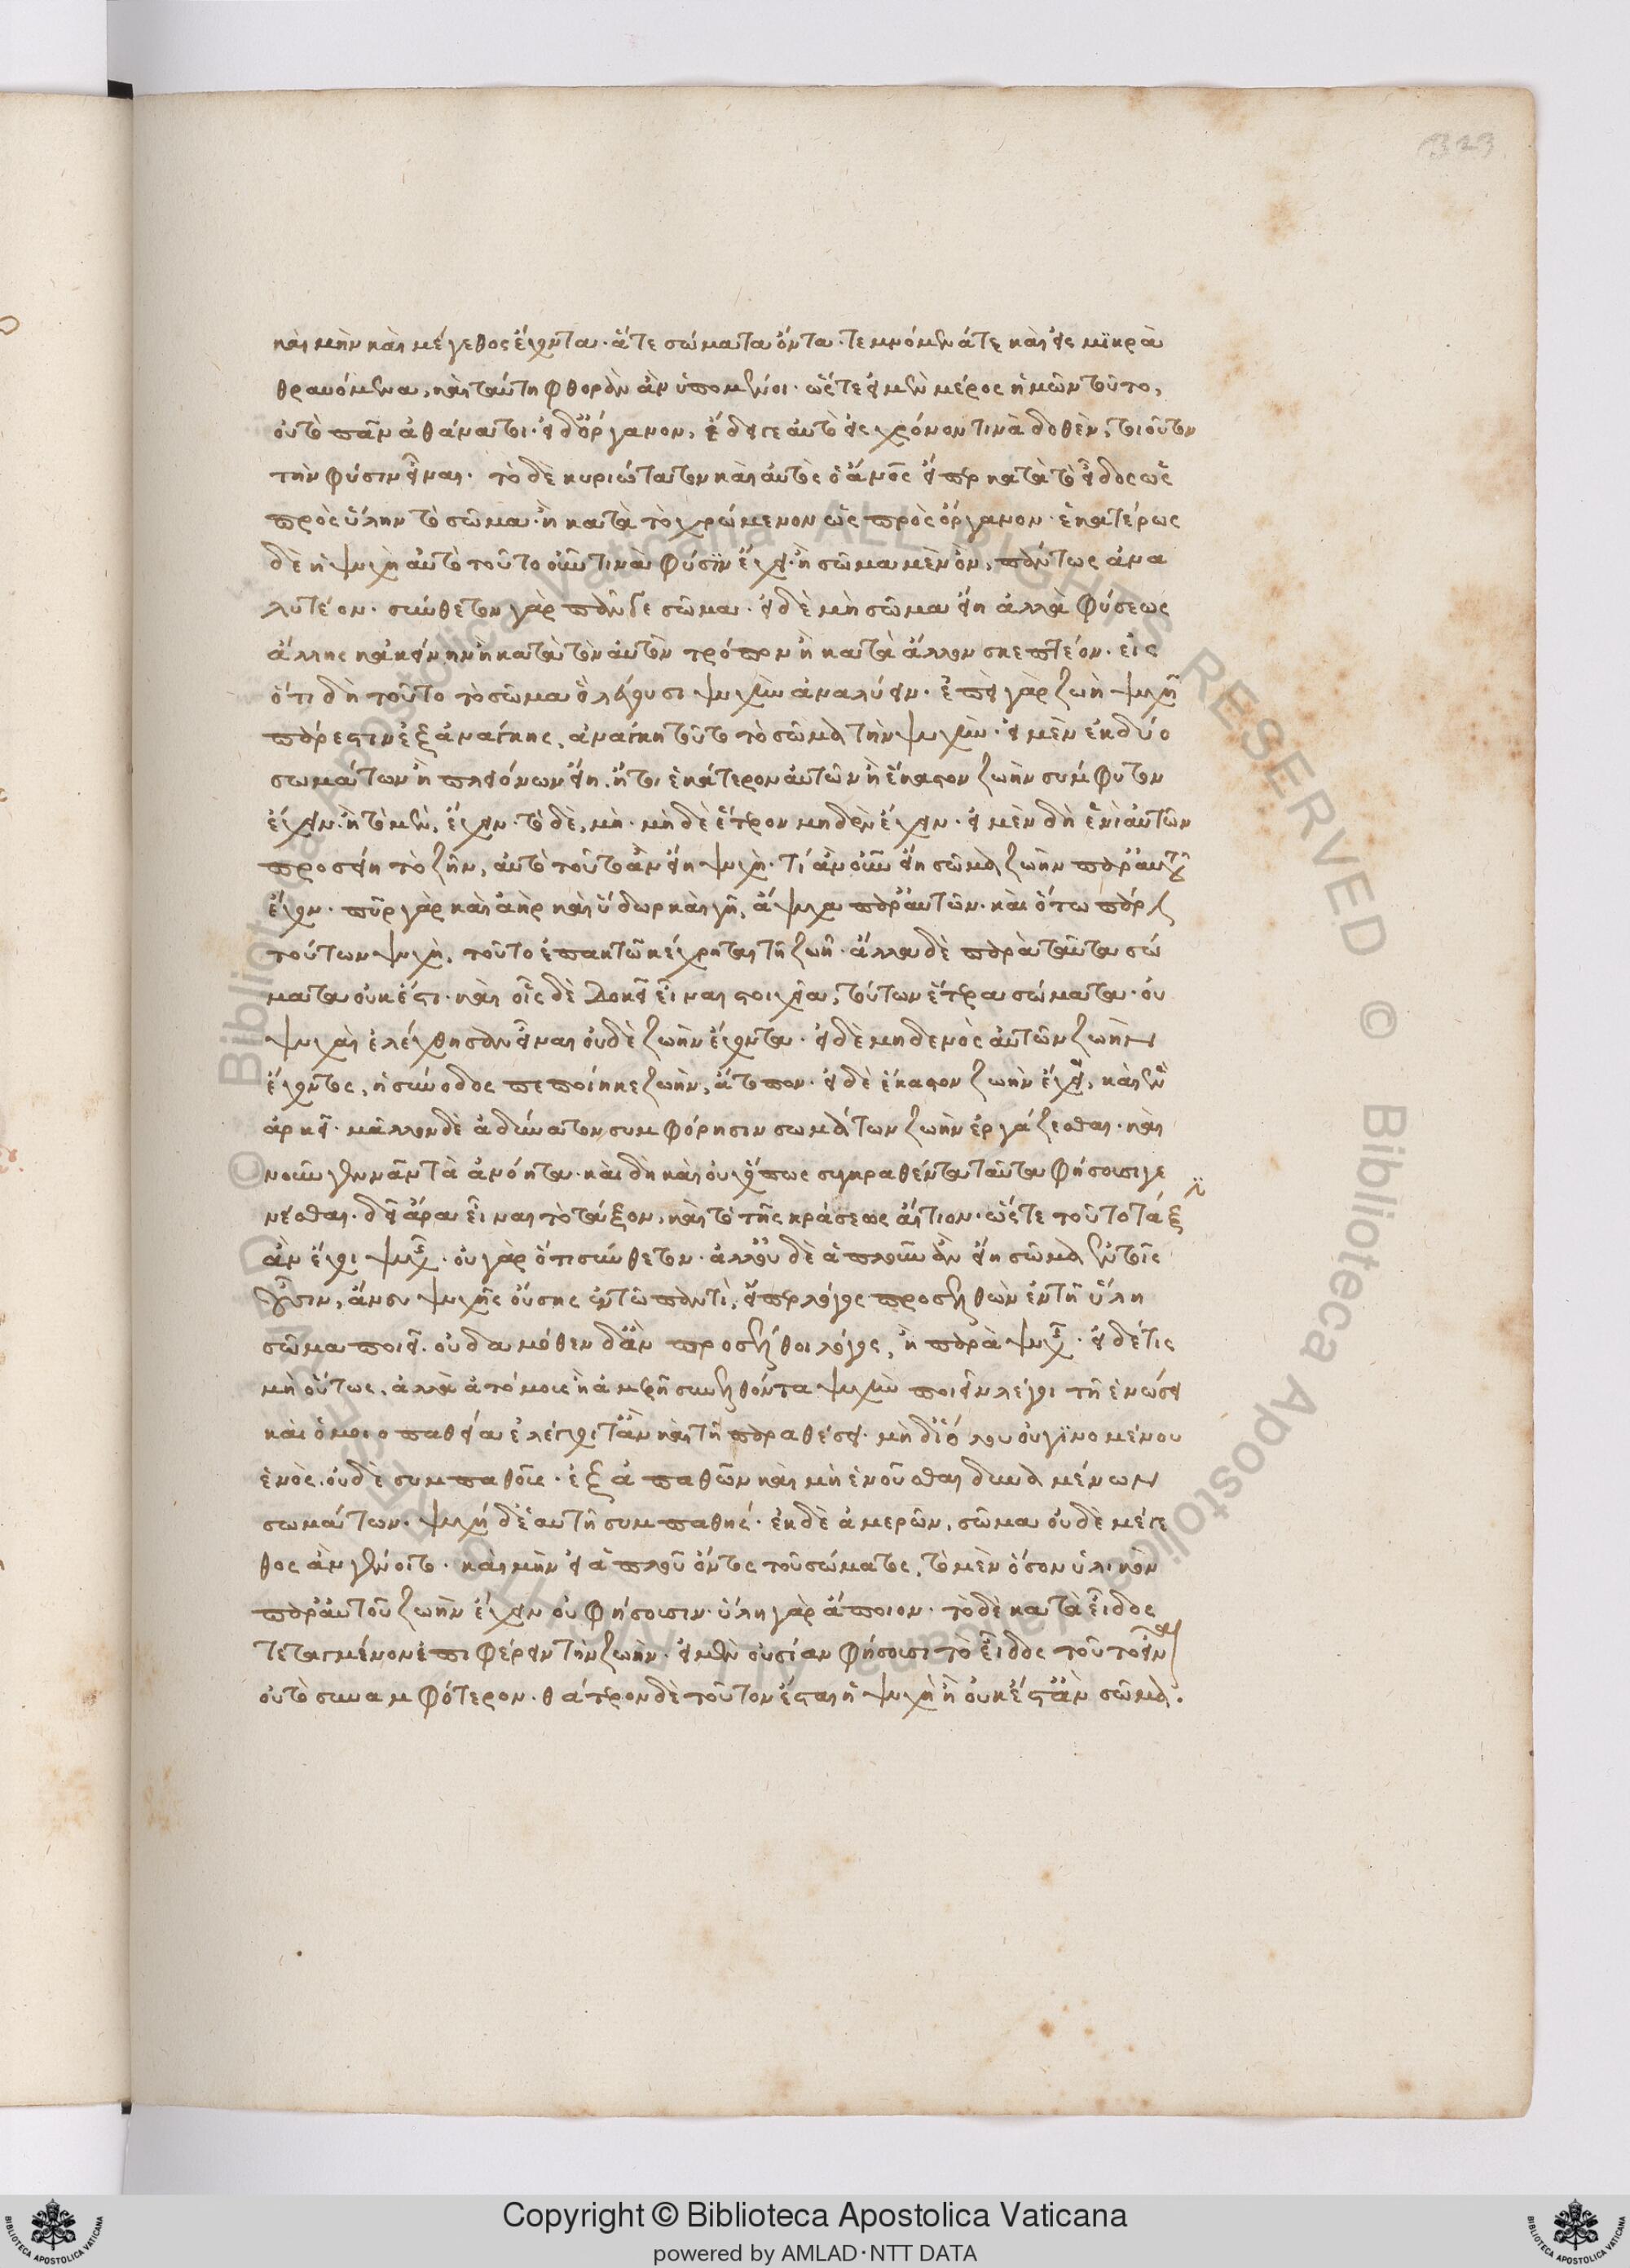 323
καὶ μὴν καὶ μέγεθος ἔχοντα· ἅτε σώματα ὄντα· τεμνόμενά τε καὶ εἰς μϊκρὰ
θραυόμενα, καὶ ταύτη φθορὰν ἂν ὑπομένοι· ὥστ' εἰ μὲν μέρος ἡμῶν τοῦτο,
οὐ τὸ πᾶν ἀθάνατοι· εἰ δ' ὄργανον, ἔδει γε αὐτὸ εἰς χρόνον τινὰ δοθὲν, τοιοῦτον
τὴν φύσιν εἶναι· τὸ δὲ κυριώτατον καὶ αὐτὸς ὁ ἄνος εἴπερ κατὰ τὸ εἶδος ὡς
πρὸς ὕλην τὸ σῶμα· ἢ κατὰ τὸ χρώμενον ὡς πρὸς ὄργανον· ἑκατέρως
δὲ ἡ ψυχὴ αὐτὸ τοῦτο οὖν τινὰ φύσϊν ἔχει· ἢ σῶμα μὲν ὂν, πάντως ἀνα
λυτέον· σύνθετον γὰρ πᾶν γε σῶμα· εἰ δὲ μὴ σῶμα εἴη ἀλλὰ φύσεως
ἄλλης κἀκείνην ἢ κατὰ τὸν αὐτὸν τρόπον ἢ κατὰ ἄλλον σκεπτέον· εἰς
ὅτι δὴ τοῦτο τὸ σῶμα ὃ λέγουσι ψυχὴν ἀναλύειν· ἐπεὶ γὰρ ζωὴ ψυχῇ
πάρεστιν ἐξ ἀνάγκης, ἀνάγκη τοῦτο τὸ σῶμα τὴν ψυχὴν· εἰ μὲν ἐκ δύο
σωμάτων ἢ πλειόνων εἴη, ἤτοι ἑκάτερον αὐτῶν ἢ ἕκαστον ζωὴν σύμφυτον
ἔχειν· ἢ τὸ μὲν, ἔχειν· τὸ δὲ, μὴ· μὴ δὲ ἕτερον μηδὲν ἔχειν· εἰ μὲν δὴ ἑνὶ αὐτῶν
προσείη τὸ ζῆν, αὐτὸ τοῦτο ἂν εἴη ψυχὴ· τί ἂν οὖν εἴη σῶμα ζωὴν παρ' αὐτοῦ
ἔχον· πῦρ γὰρ καὶ ἀὴρ καὶ ὕδωρ καὶ γῆ, ἄψυχα παρ' αὐτῶν· καὶ ὅτω πάρεστι
τούτων ψυχὴ, τοῦτο ἐπακτῶ κέχρηται τῆ ζωῆ· ἄλλα δὲ παρὰ ταῦτα σώ
ματα οὐκ ἔστι· καὶ οἷς δὲ δοκεῖ εἶναι στοιχεῖα, τούτων ἕτερα σώματα· οὐ
ψυχαὶ ἐλέχθησαν εἶναι οὐδὲ ζωὴν ἔχοντα· εἰ δὲ μηδενὸς αὐτῶν ζωὴν
ἔχοντος, ἡ σύνοδος πεποίηκε ζωὴν, ἄτοπον· εἰ δὲ ἕκαστον ζωὴν ἔχει, καὶ ἓν
ἀρκεῖ· μᾶλλον δὲ ἀδύνατον συμφόρησιν σωμάτων ζωὴν ἐργάζεσθαι· καὶ
νοῦν γεννᾶν τὰ ἀνόητα· καὶ δὴ καὶ οὐχ ὅπως συγκραθέντα ταῦτα φήσουσι γε
νέσθαι· δεῖ ἄρα εἶναι τὸ τάξον, καὶ τὸ τῆς κράσεως αἴτιον· ὥστε τοῦτο τάξιν
ἂν ἔχοι ψυχῆς· οὐ γὰρ ὅτι σύνθετον· ἀλλ' οὐδὲ ἁπλοῦν ἂν εἴη σῶμα ἐν τοῖς
οὖσιν, ἄνευ ψυχῆς οὔσης ἐν τῶ παντὶ, εἴπερ λόγος προσελθὼν ἐν τῆ ὕλη
σῶμα ποιεῖ· οὐδαμόθεν δ' ἂν προσέλθοι λόγος, ἢ παρὰ ψυχῆς· εἰ δέ τις
μὴ οὕτως, ἀλλὰ ἀτόμοις ἢ ἀμερῆ συνελθόντα ψυχὴν ποιεῖν λέγοι τῆ ἑνώσει
καὶ ὁμοιοπαθεία ἐλέγχοιτ' ἂν καὶ τῆ παραθέσει· μὴ δϊ' ὅλου οὐ γϊνομένου
ἑνὸς· οὐδὲ συμπαθοῦς· ἐξ ἀπαθῶν καὶ μὴ ἑνοῦσθαι δυναμένων
σωμάτων· ψυχή δὲ αὑτῆ συμπαθής· ἐκ δὲ ἀμερῶν, σῶμα οὐδὲ μέγε
θος ἂν γένοιτο· καὶ μὴν εἰ ἁπλοῦ ὄντος τοῦ σώματος, τὸ μὲν ὅσον ὑλικὸν
παρ' αὑτοῦ ζωὴν ἔχειν οὐ φήσουσιν· ὕλη γὰρ ἄποιον· τὸ δὲ κατὰ εἶδος
τεταγμένον ἐπιφέρειν τὴν ζωὴν· εἰ μὲν οὐσίαν φήσουσι τὸ εἶδος τοῦτο εἶναι
οὐ τὸ συναμφότερον· θάτερον δὲ τοῦτον ἔσται ἡ ψυχὴ ἢ οὐκέτ' ἂν σῶμα.
© Biblioteca Apostolica Vaticana ALL RIGHTS RESERVED © Biblioteca Apostolica Vaticana
Copyright © Biblioteca Apostolica Vaticana
powered by AMLAD·NTT DATA
BIBLIOTECA APOSTOLICA VATICANA
BIBLIOTECA APOSTOLICA VATICANA